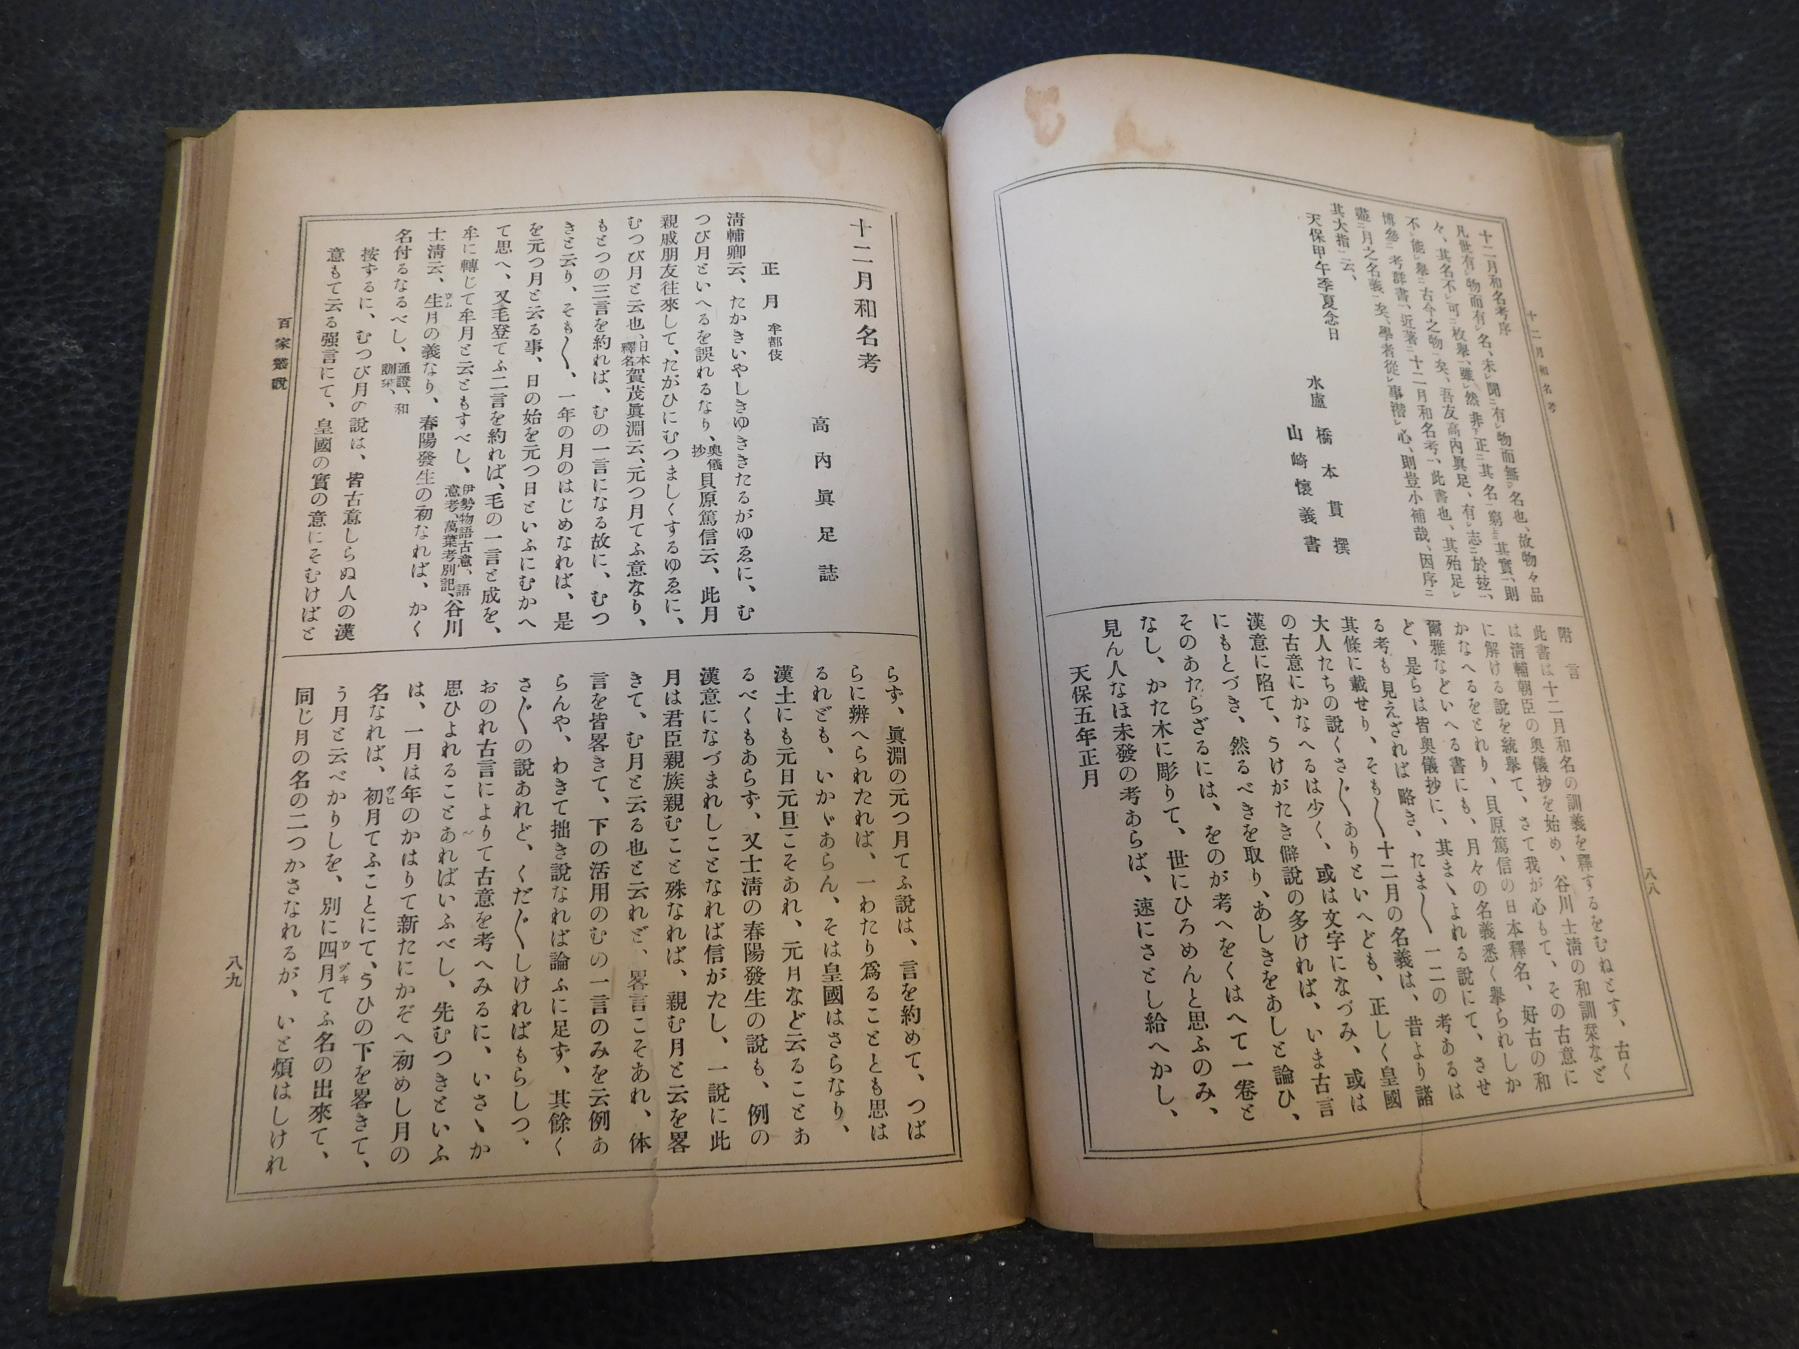 十二月和名考
八八
十二月和名考序
凡世有㆑物而有㆑名、未㆑聞㆓有㆑物而無㆒㆑名也、故物々品
々、其名不㆑可㆓枚擧㆒、雖㆑然非㆘正㆓其名㆒窮㆗其實㆖、則
不㆑能㆑擧㆓古今之物㆒矣、吾友高內眞足、有㆑志㆓於玆㆒、
博參㆓考群書㆒、近著㆓十二月和名考㆒、此書也、其殆足㆑
盡㆓月之名義㆒矣、學者從㆑事潛㆑心、則豈小補哉、因序㆓
其大指㆒云、
天保甲午季夏念日
水廬 橋本貫撰
山崎懷義書
附言
此書は十二月和名の訓義を釋するをむねとす、古く
は淸輔朝臣の奧儀抄を始め、谷川士淸の和訓栞など
に解ける說を統擧て、さて我が心もて、その古意に
かなへるをとれり、貝原篤信の日本釋名、好古の和
爾雅などいへる書にも、月々の名義悉く擧られしか
ど、是らは皆奧儀抄に、其まゝよれる說にて、させ
る考も見えざれば略き、たま〱一二の考あるは
其條に載せり、そも〱十二月の名義は、昔より諸
大人たちの說くさ〲ありといへども、正しく皇國
の古意にかなへるは少く、或は文字になづみ、或は
漢意に陷て、うけがたき僻說の多ければ、いま古言
にもとづき、然るべきを取り、あしきをあしと論ひ、
そのあたらざるには、をのが考へをくはへて一卷と
なし、かた木に彫りて、世にひろめんと思ふのみ、
見ん人なほ未發の考あらば、速にさとし給へかし、
天保五年正月
十二月和名考
高內眞足誌
正月 牟都伎
淸輔卿云、たかきいやしきゆききたるがゆゑに、む
つび月といへるを誤れるなり、奧儀抄貝原篤信云、此月
親戚朋友往來して、たがひにむつましくするゆゑに、
むつび月と云也、日本釋名賀茂眞淵云、元つ月てふ意なり、
もとつの三言を約れば、むの一言になる故に、むつ
きと云り、そも〱、一年の月のはじめなれば、是
を元つ月と云る事、日の始を元つ日といふにむかへ
て思へ、又毛登てふ二言を約れば、毛の一言と成を、
牟に轉じて牟月と云ともすべし、伊勢物語古意、語意考、萬葉考別記、谷川
士淸云、生月の義なり、春陽發生の初なれば、かく
名付るなるべし、通證、和訓栞、
按ずるに、むつび月の說は、皆古意しらぬ人の漢
意もて云る强言にて、皇國の實の意にそむけばと
らず、眞淵の元つ月てふ說は、言を約めて、つば
らに辨へられたれば、一わたり爲ることとも思は
るれども、いかゞあらん、そは皇國はさらなり、
漢土にも元日元旦こそあれ、元月など云ることあ
るべくもあらず、又士淸の春陽發生の說も、例の
漢意になづまれしことなれば信がたし、一說に此
月は君臣親族親むこと殊なれば、親む月と云を畧
きて、む月と云る也と云れど、畧言こそあれ、体
言を皆畧きて、下の活用のむの一言のみを云例あ
らんや、わきて拙き說なれば論ふに足ず、其餘く
さ〲の說あれど、くだ〲しければもらしつ、
おのれ古言によりて古意を考へみるに、いさゝか
思ひよれることあればいふべし、先むつきといふ
は、一月は年のかはりて新たにかぞへ初めし月の
名なれば、初月てふことにて、うひの下を畧きて、
う月と云べかりしを、別に四月てふ名の出來て、
同じ月の名の二つかさなれるが、いと煩はしけれ
百家叢說
八九